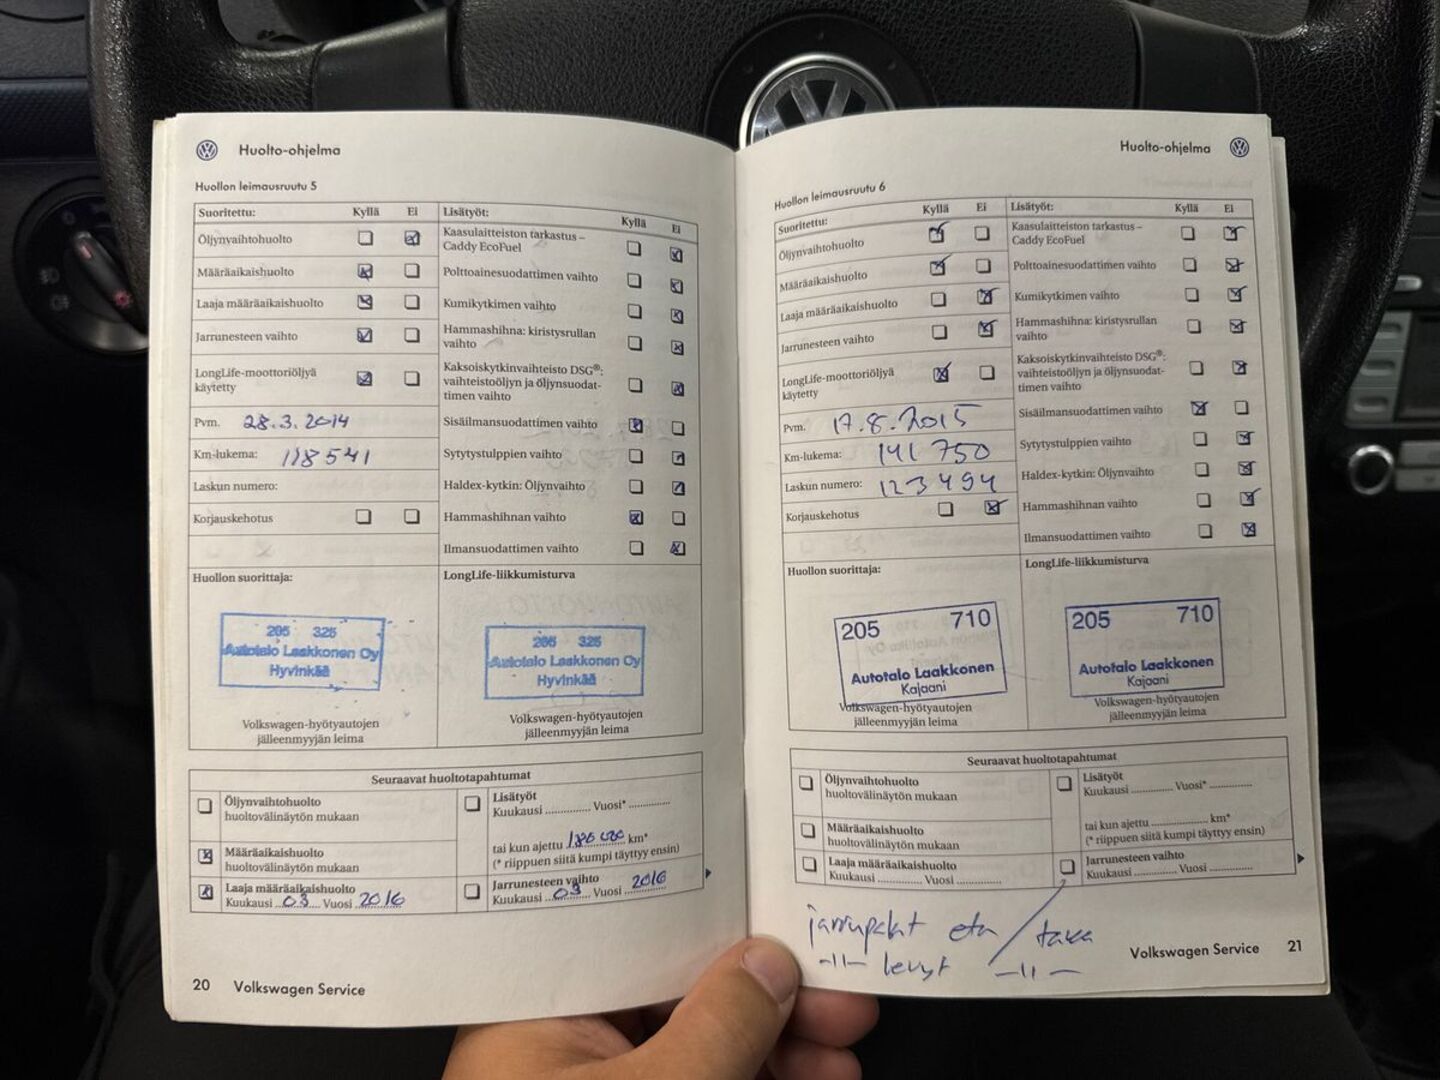 Huolto-ohjelma
Huollon leimausruutu 5
Suoritettu: Kyllä Ei
Öljynvaihtohuolto
Määräaikaishuolto
Laaja määräaikaishuolto
Jarrunesteen vaihto
LongLife-moottoriöljyä
käytetty
Pvm. 28.3.2014
Km-lukema: 118541
Laskun numero:
Korjauskehotus
Lisätyöt: Kyllä Ei
Kaasulaitteiston tarkastus –
Caddy EcoFuel
Polttoainesuodattimen vaihto
Kumikytkimen vaihto
Hammashihna: kiristysrullan
vaihto
Kaksoiskytkinvaihteisto DSG®:
vaihteistoöljyn ja öljynsuodat-
timen vaihto
Sisäilmansuodattimen vaihto
Sytytystulppien vaihto
Haldex-kytkin: Öljynvaihto
Hammashihnan vaihto
Ilmansuodattimen vaihto
Huollon suorittaja:
205 325
Autotalo Laakkonen Oy
Hyvinkää
Volkswagen-hyötyautojen
jälleenmyyjän leima
LongLife-liikkumisturva
205 325
Autotalo Laakkonen Oy
Hyvinkää
Volkswagen-hyötyautojen
jälleenmyyjän leima
Seuraavat huoltotapahtumat
Öljynvaihtohuolto
huoltovälinäytön mukaan
Määräaikaishuolto
huoltovälinäytön mukaan
Laaja määräaikaishuolto
Kuukausi 03 Vuosi 2016
Lisätyöt
Kuukausi Vuosi*
tai kun ajettu km*
(* riippuen siitä kumpi täyttyy ensin)
Jarrunesteen vaihto
Kuukausi 03 Vuosi 2016
20 Volkswagen Service
Huolto-ohjelma
Huollon leimausruutu 6
Suoritettu: Kyllä Ei
Öljynvaihtohuolto
Määräaikaishuolto
Laaja määräaikaishuolto
Jarrunesteen vaihto
LongLife-moottoriöljyä
käytetty
Pvm. 17.8.2015
Km-lukema: 141 750
Laskun numero: 123494
Korjauskehotus
Lisätyöt: Kyllä Ei
Kaasulaitteiston tarkastus –
Caddy EcoFuel
Polttoainesuodattimen vaihto
Kumikytkimen vaihto
Hammashihna: kiristysrullan
vaihto
Kaksoiskytkinvaihteisto DSG®:
vaihteistoöljyn ja öljynsuodat-
timen vaihto
Sisäilmansuodattimen vaihto
Sytytystulppien vaihto
Haldex-kytkin: Öljynvaihto
Hammashihnan vaihto
Ilmansuodattimen vaihto
Huollon suorittaja:
205 710
Autotalo Laakkonen
Kajaani
Volkswagen-hyötyautojen
jälleenmyyjän leima
LongLife-liikkumisturva
205 710
Autotalo Laakkonen
Kajaani
Volkswagen-hyötyautojen
jälleenmyyjän leima
Seuraavat huoltotapahtumat
Öljynvaihtohuolto
huoltovälinäytön mukaan
Määräaikaishuolto
huoltovälinäytön mukaan
Laaja määräaikaishuolto
Kuukausi Vuosi
Lisätyöt
Kuukausi Vuosi*
tai kun ajettu km*
(* riippuen siitä kumpi täyttyy ensin)
Jarrunesteen vaihto
Kuukausi Vuosi
jarrupalat etu / taka
-11- levyt -11-
Volkswagen Service 21